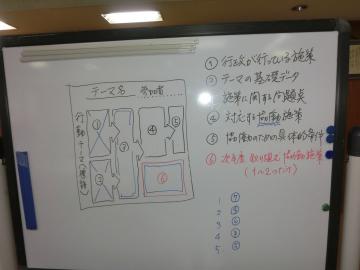 テーマ名 参加者
行動テーマ(模詩)
①
②
③
④
⑤
⑥
① 行政が行っている施策
② テーマの基礎データ
施策に関する問題点
④ 対応する協働施策
⑤ 協働のための具体的条件
⑥ 次年度 取り組む協働施策
(1~2つだけ)
1
2
3
4
5